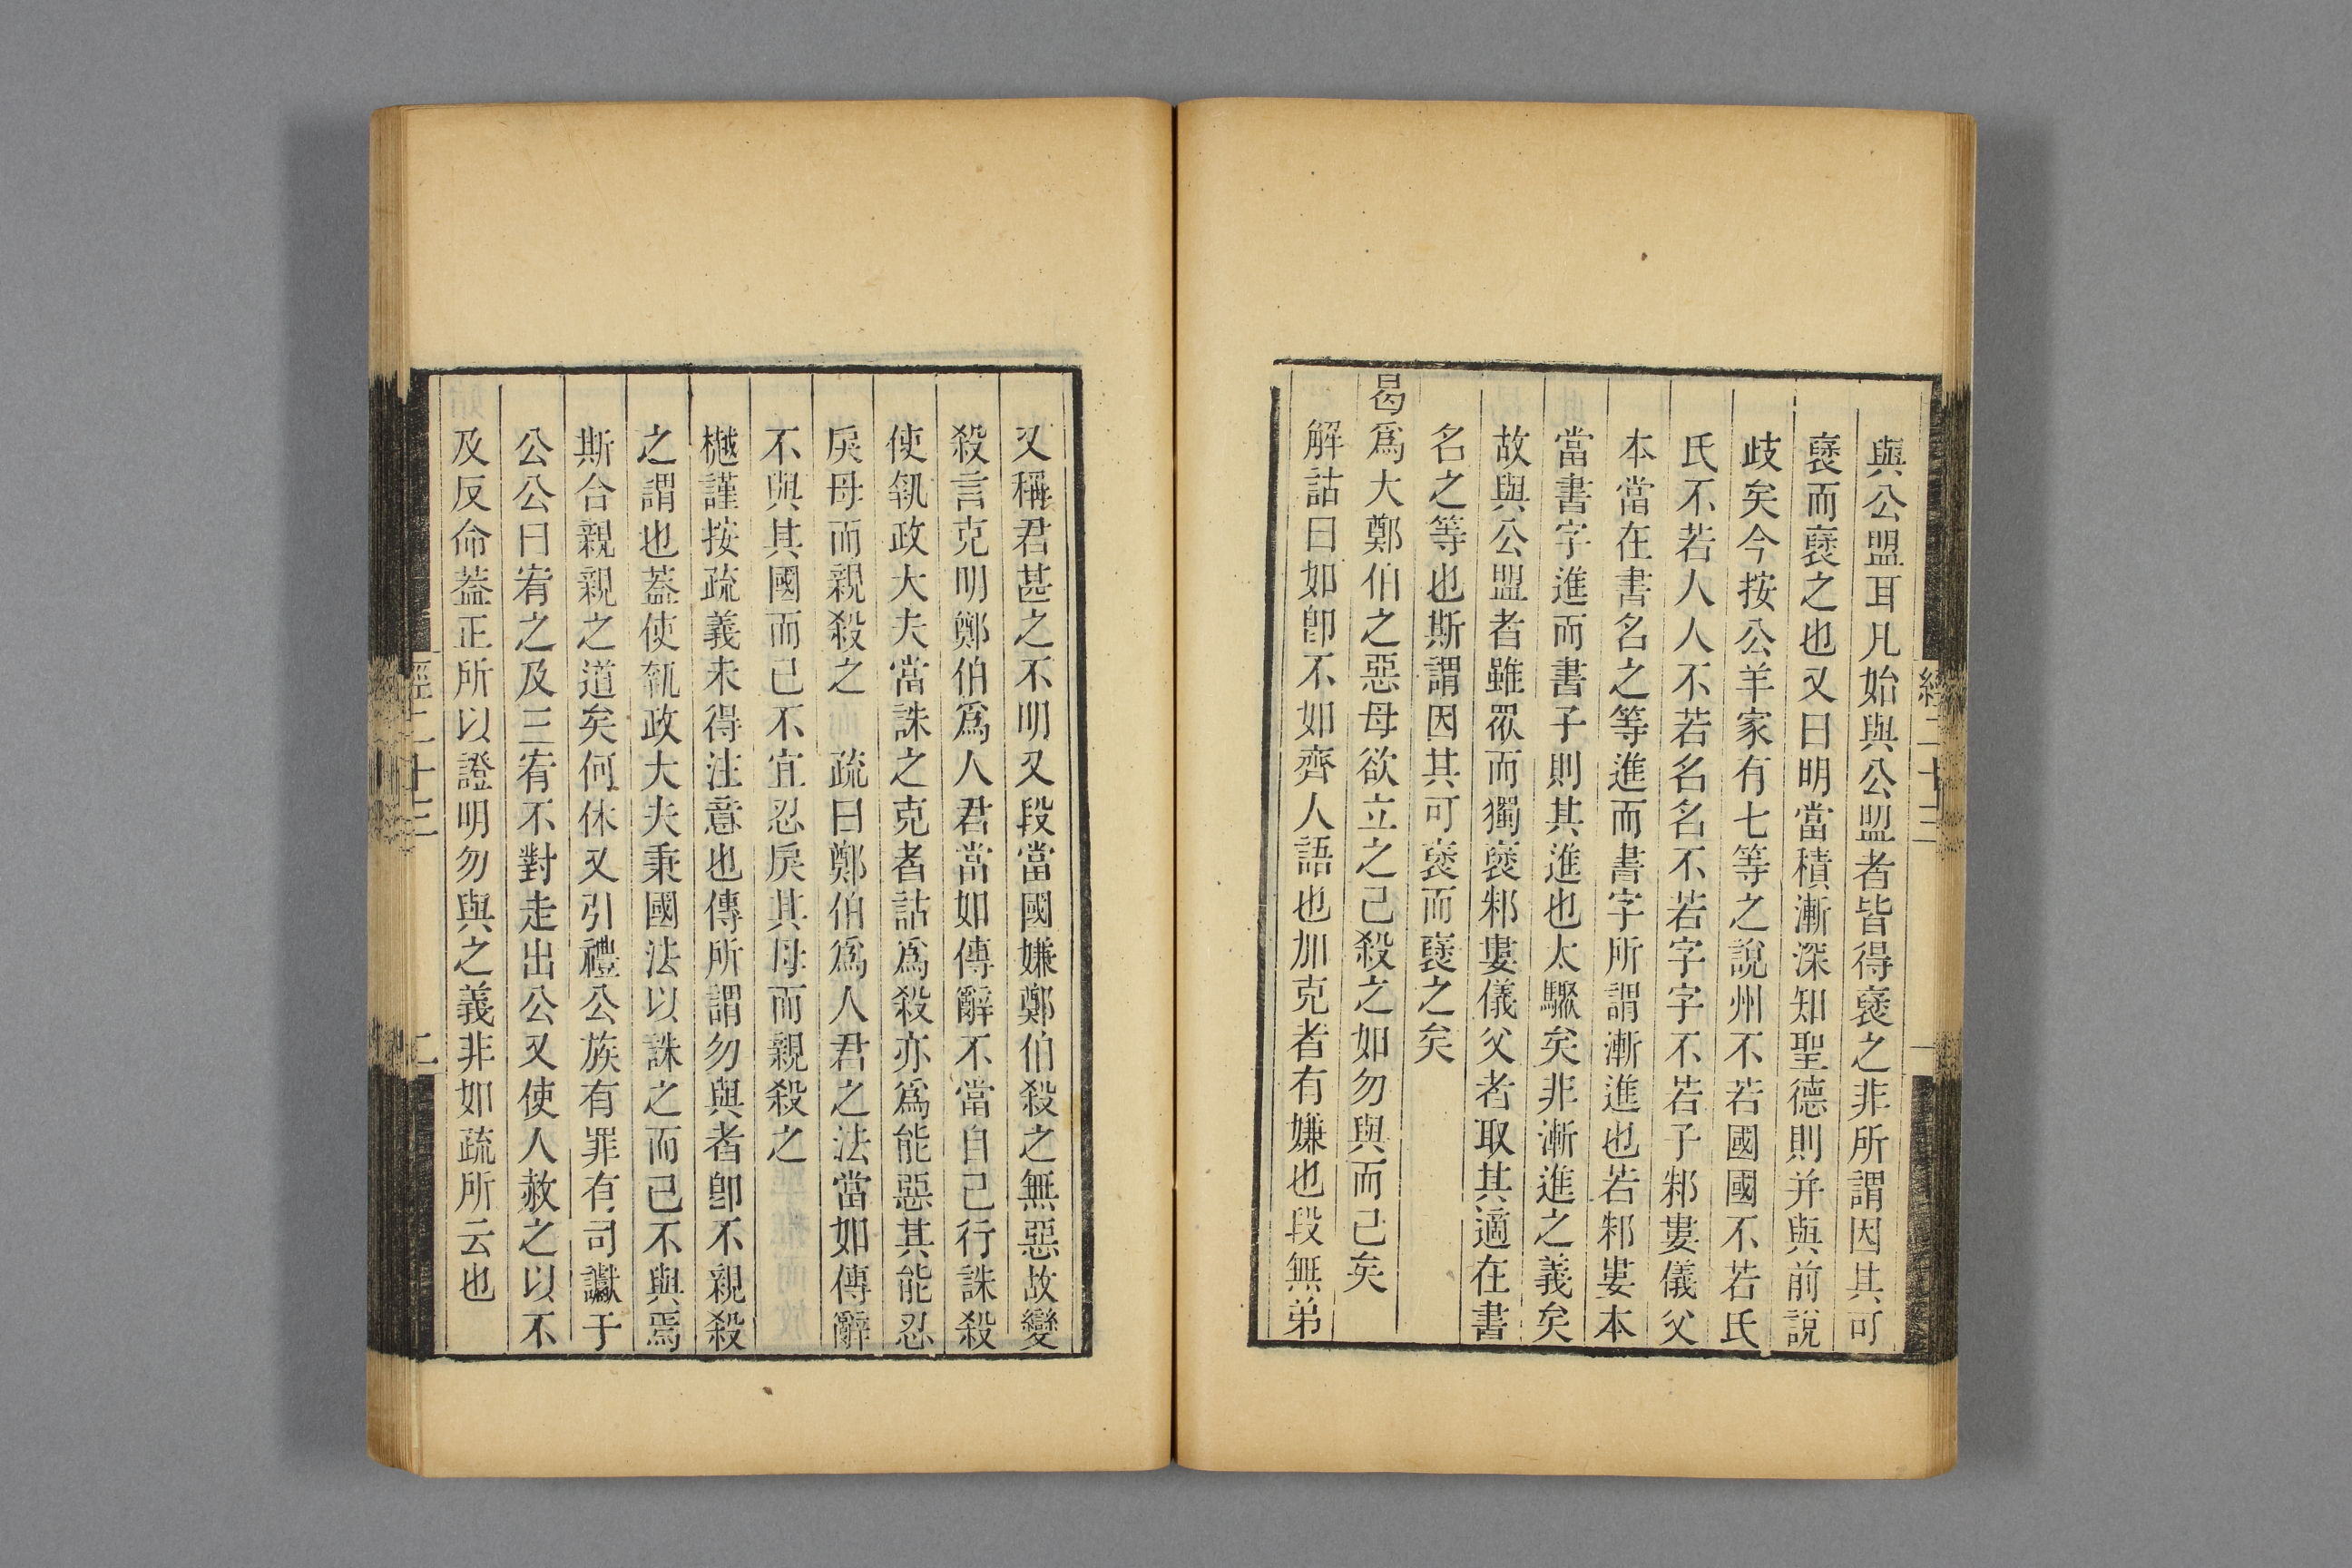 與公盟耳凡始與公盟者皆得襃之非所謂因其可
襃而襃之也又曰明當積漸深知聖德則并與前説
歧矣今按公羊家有七等之説州不若國國不若氏
氏不若人人不若名名不若字字不若子邾婁儀父
本當在書名之等進而書字所謂漸進也若邾婁本
當書字進而書子則其進也太驟矣非漸進之義矣
故與公盟者雖眾而獨襃邾婁儀父者取其適在書
名之等也斯謂因其可襃而襃之矣
曷爲大鄭伯之惡母欲立之己殺之如勿與而已矣
解詁曰如卽不如齊人語也加克者有嫌也段無弟
經二十三
一
又稱君甚之不明又段當國嫌鄭伯殺之無惡故變
殺言克明鄭伯爲人君當如傳辭不當自己行誅殺
使執政大夫當誅之克者詁爲殺亦爲能惡其能忍
戾母而親殺之 疏曰鄭伯爲人君之法當如傳辭
不與其國而已不宜忍戾其母而親殺之
樾謹按疏義未得注意也傳所謂勿與者卽不親殺
之謂也蓋使執政大夫秉國法以誅之而已不與焉
斯合親親之道矣何休又引禮公族有罪有司讞于
公公曰宥之及三宥不對走出公又使人赦之以不
及反命蓋正所以證明勿與之義非如疏所云也
經二十三
二